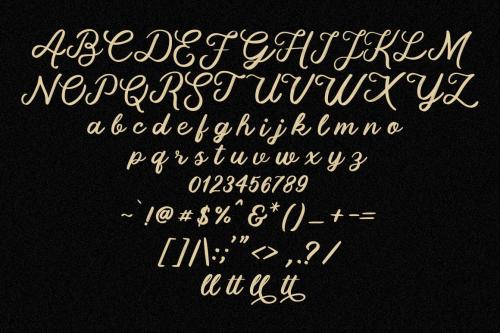 ABCDEFGHIJKLM
NOPQRSTUVWXYZ
abcdefghijklmno
pqrstuvwxyz
0123456789
~`!@#$%^&*()_+-=
[]/|\:;'"<>,.?/
ll tt ll tt